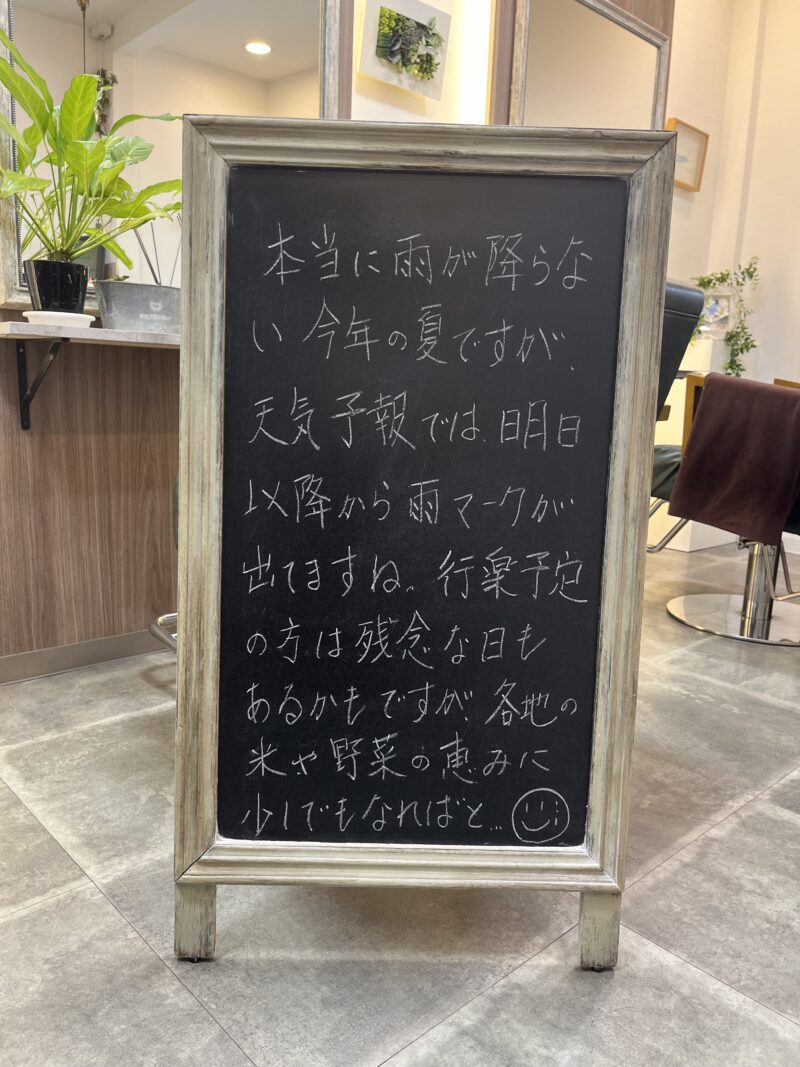 本当に雨が降らな
い今年の夏ですが、
天気予報では、明日
以降から雨マークが
出てますね。行楽予定
の方は残念な日も
あるかもですが、各地の
米や野菜の恵みに
少しでもなればと…